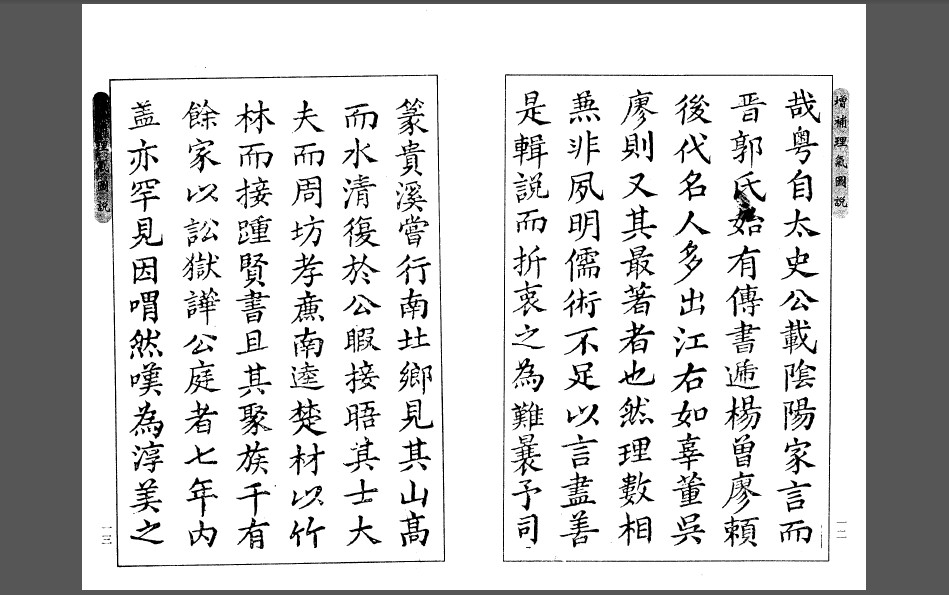 增補理氣圖說
哉粵自太史公載陰陽家言而
晋郭氏始有傳書遞楊曾廖賴
後代名人多出江右如辜董吳
廖則又其最著者也然理數相
兼非夙明儒術不足以言盡善
是輯說而折衷之為難曩予司
一二
篆貴溪嘗行南北鄉見其山高
而水清復於公暇接晤其士大
夫而周坊孝亷南逵楚材以竹
林而接踵賢書且其聚族千有
餘家以訟獄譁公庭者七年內
盖亦罕見因喟然嘆為淳美之
理氣圖說
一三